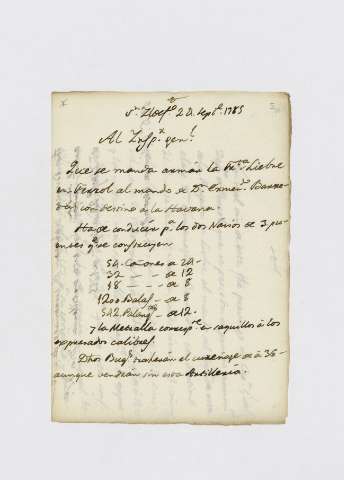 Sn. Ildefso. 20. Septe. 1783
Al Inspr. genl.
Que se manda armar la Frta. Liebre
en Ferrol al mando de Dn.
con destino á la Havana.
Ha de conducir pa. los dos Navios de 3 puen
tes qe. se construyen
54. Cañones de 24.
32 - - - de 12
18 - - - de 8
1200. Balas - de 8
542. Palanqs - de 12.
y la Metralla correspte. en saquillos á los
expresados calibres.
Dhos Buqs. traherán el de á 36.
aunque vendrán sin esta Artillería.